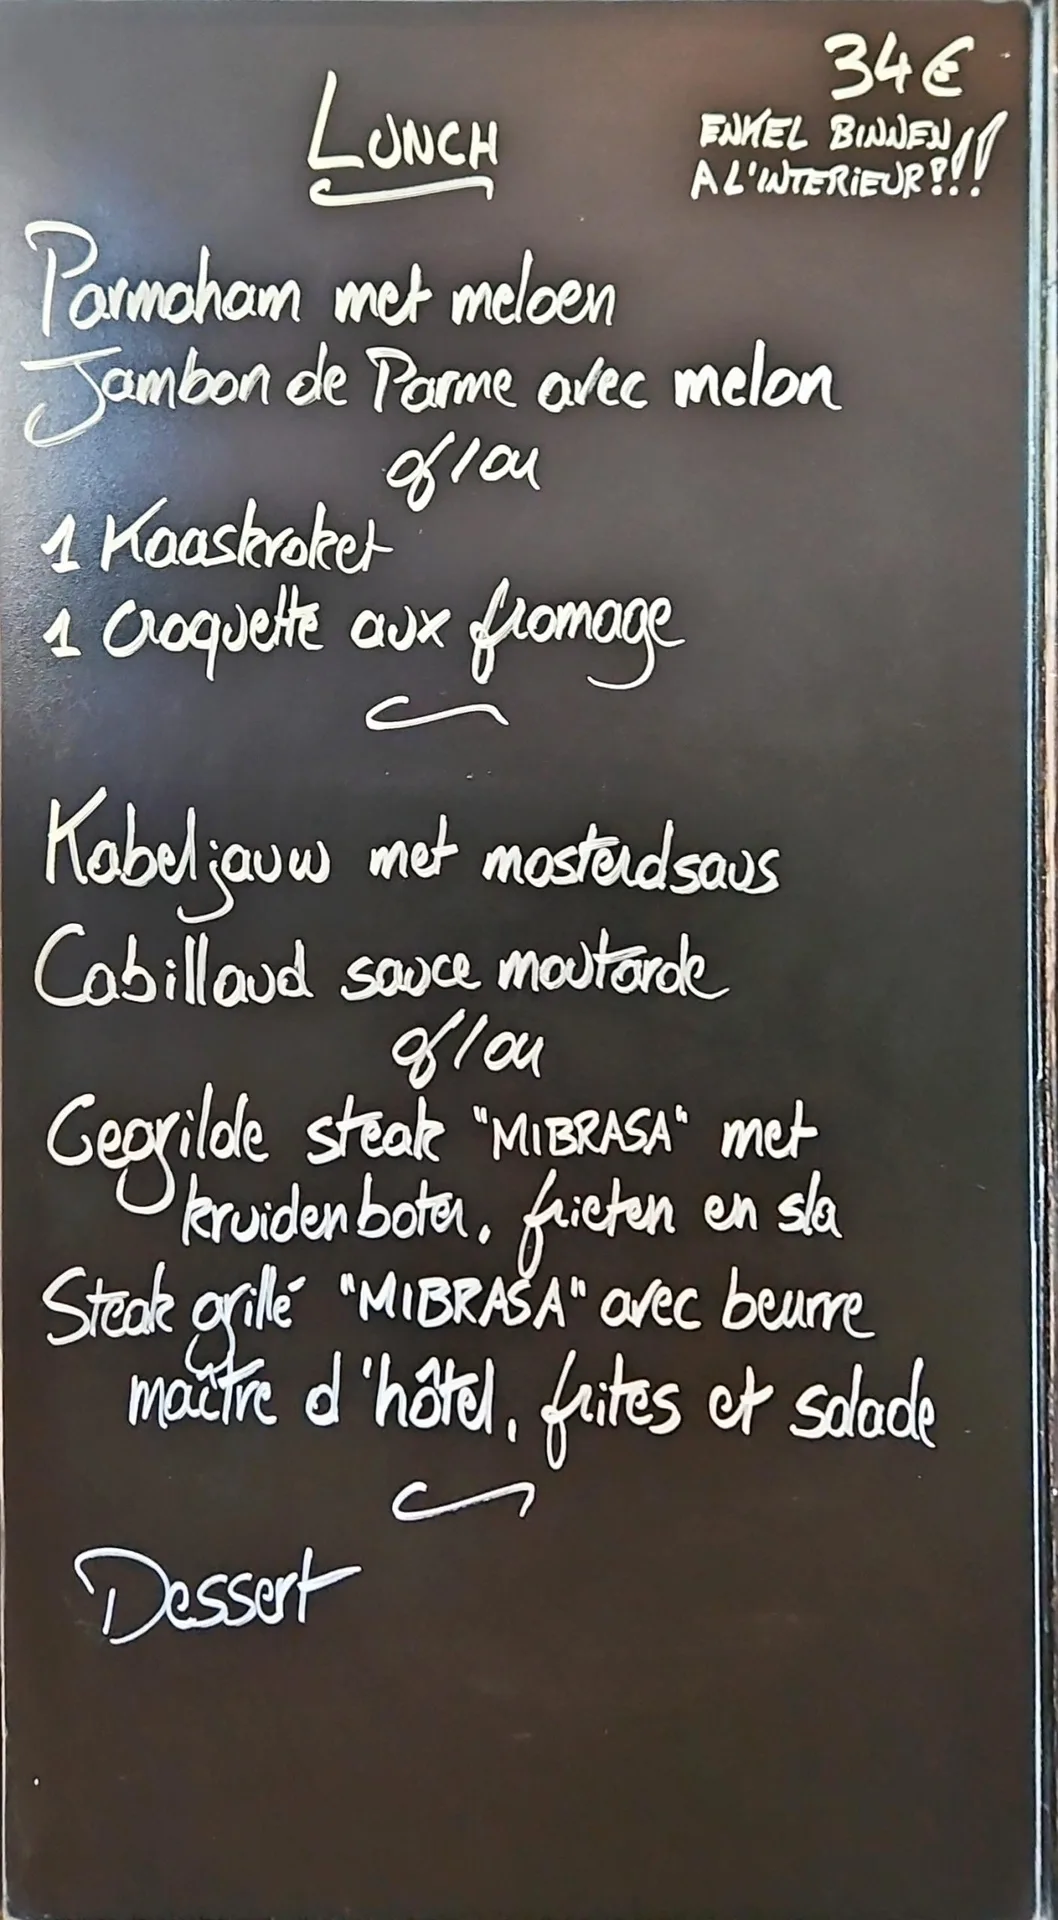 34€
LUNCH
ENKEL BINNEN!!
A L'INTERIEUR!!!
Parmaham met meloen
Jambon de Parme avec melon
of/ou
1 Kaaskroket
1 Croquette aux fromage
Kabeljauw met mosterdsaus
Cabillaud sauce moutarde
of/ou
Gegrilde steak "MIBRASA" met
kruidenboter, frieten en sla
Steak grillé "MIBRASA" avec beurre
maître d'hôtel, frites et salade
Dessert